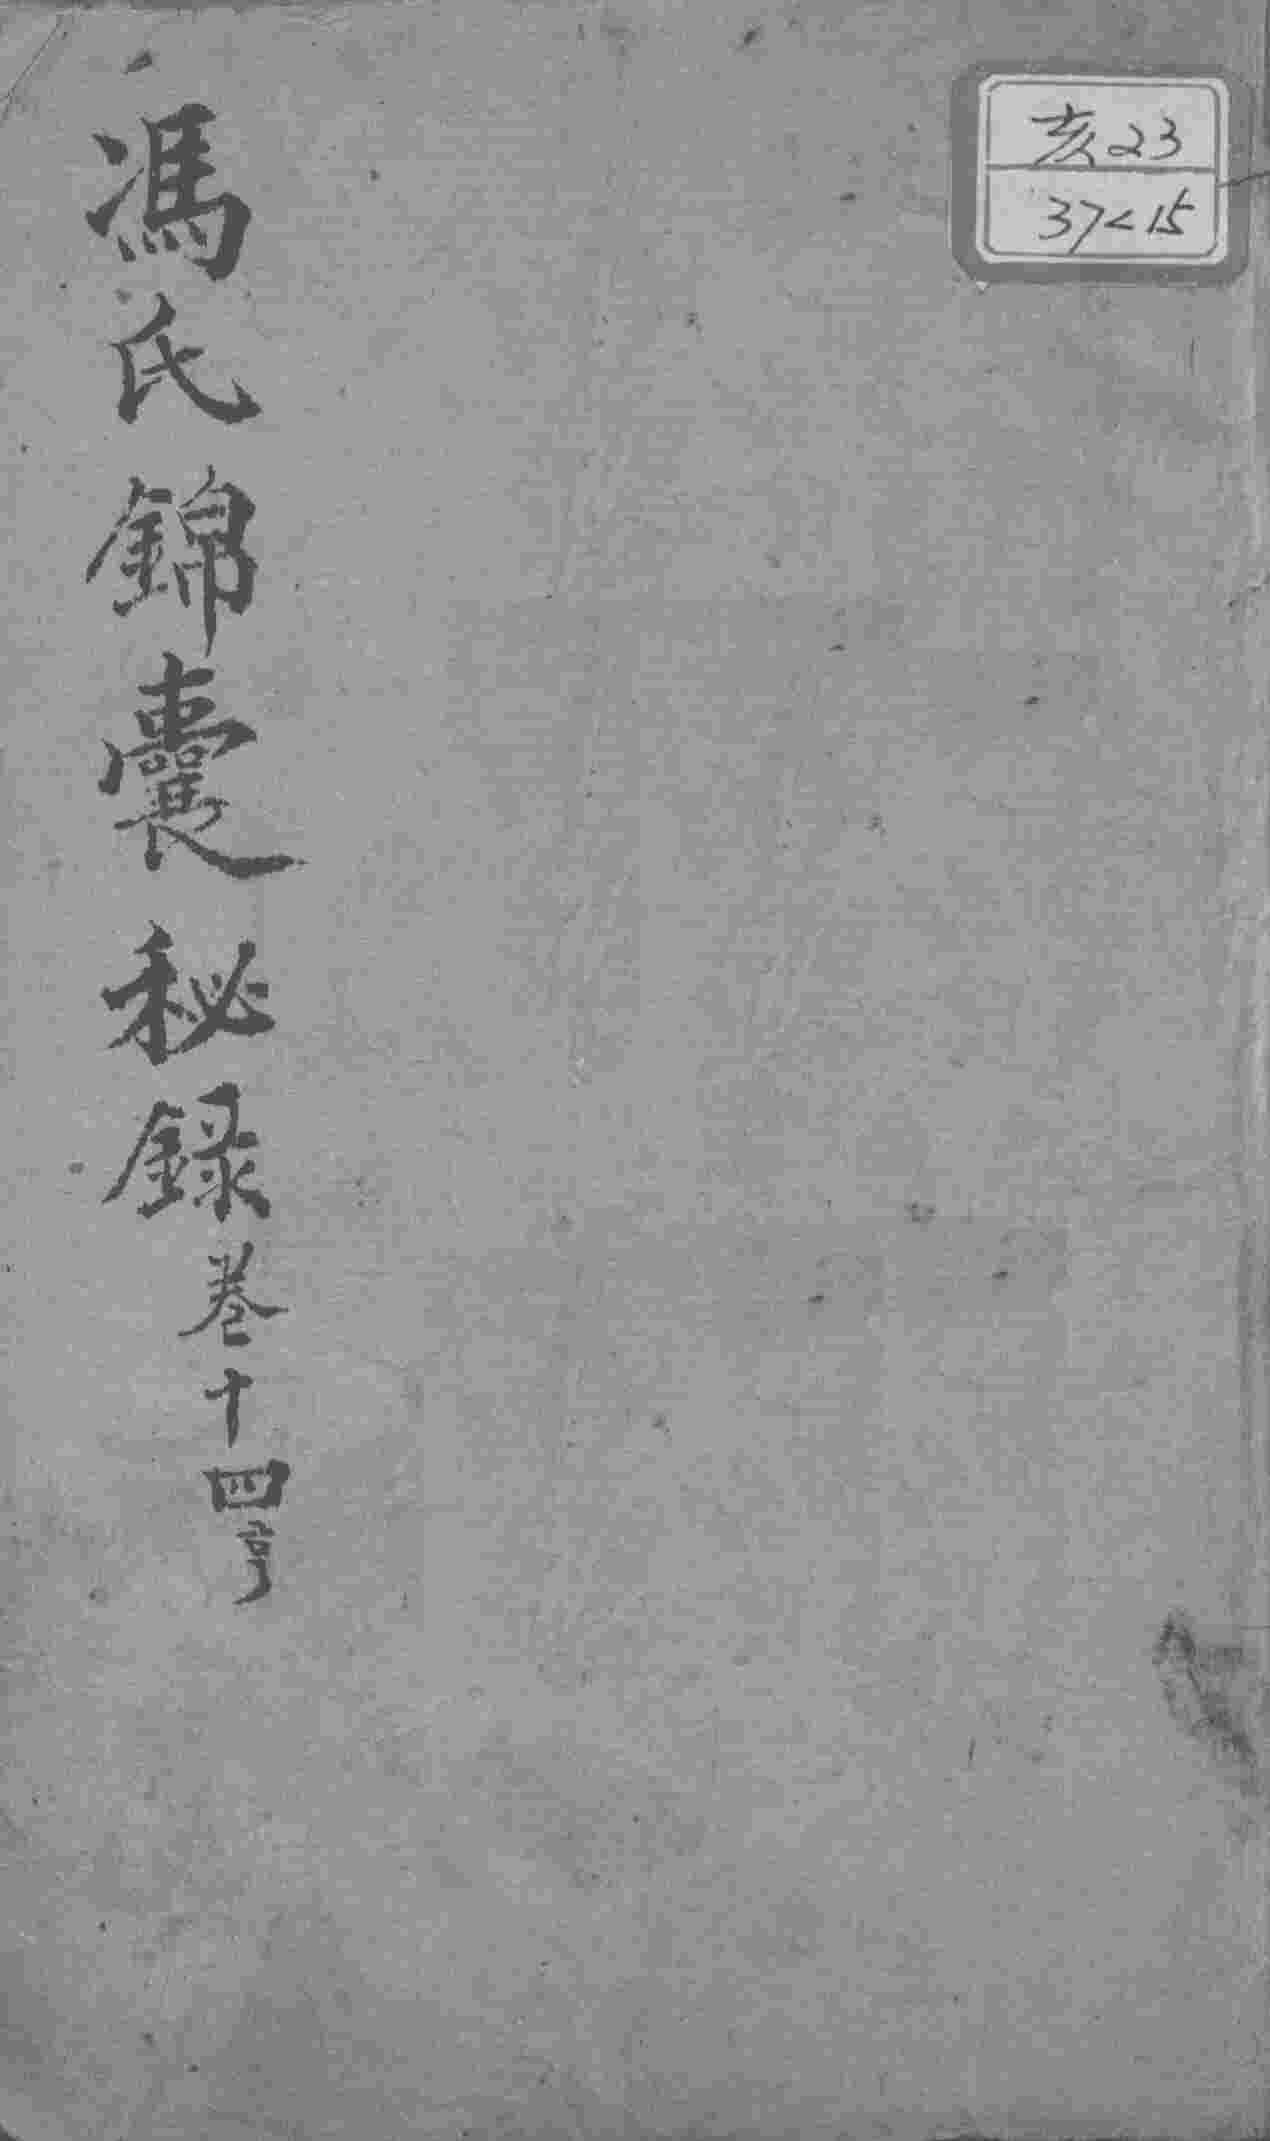 亥23
37<15
馮氏錦囊秘録卷十四亨